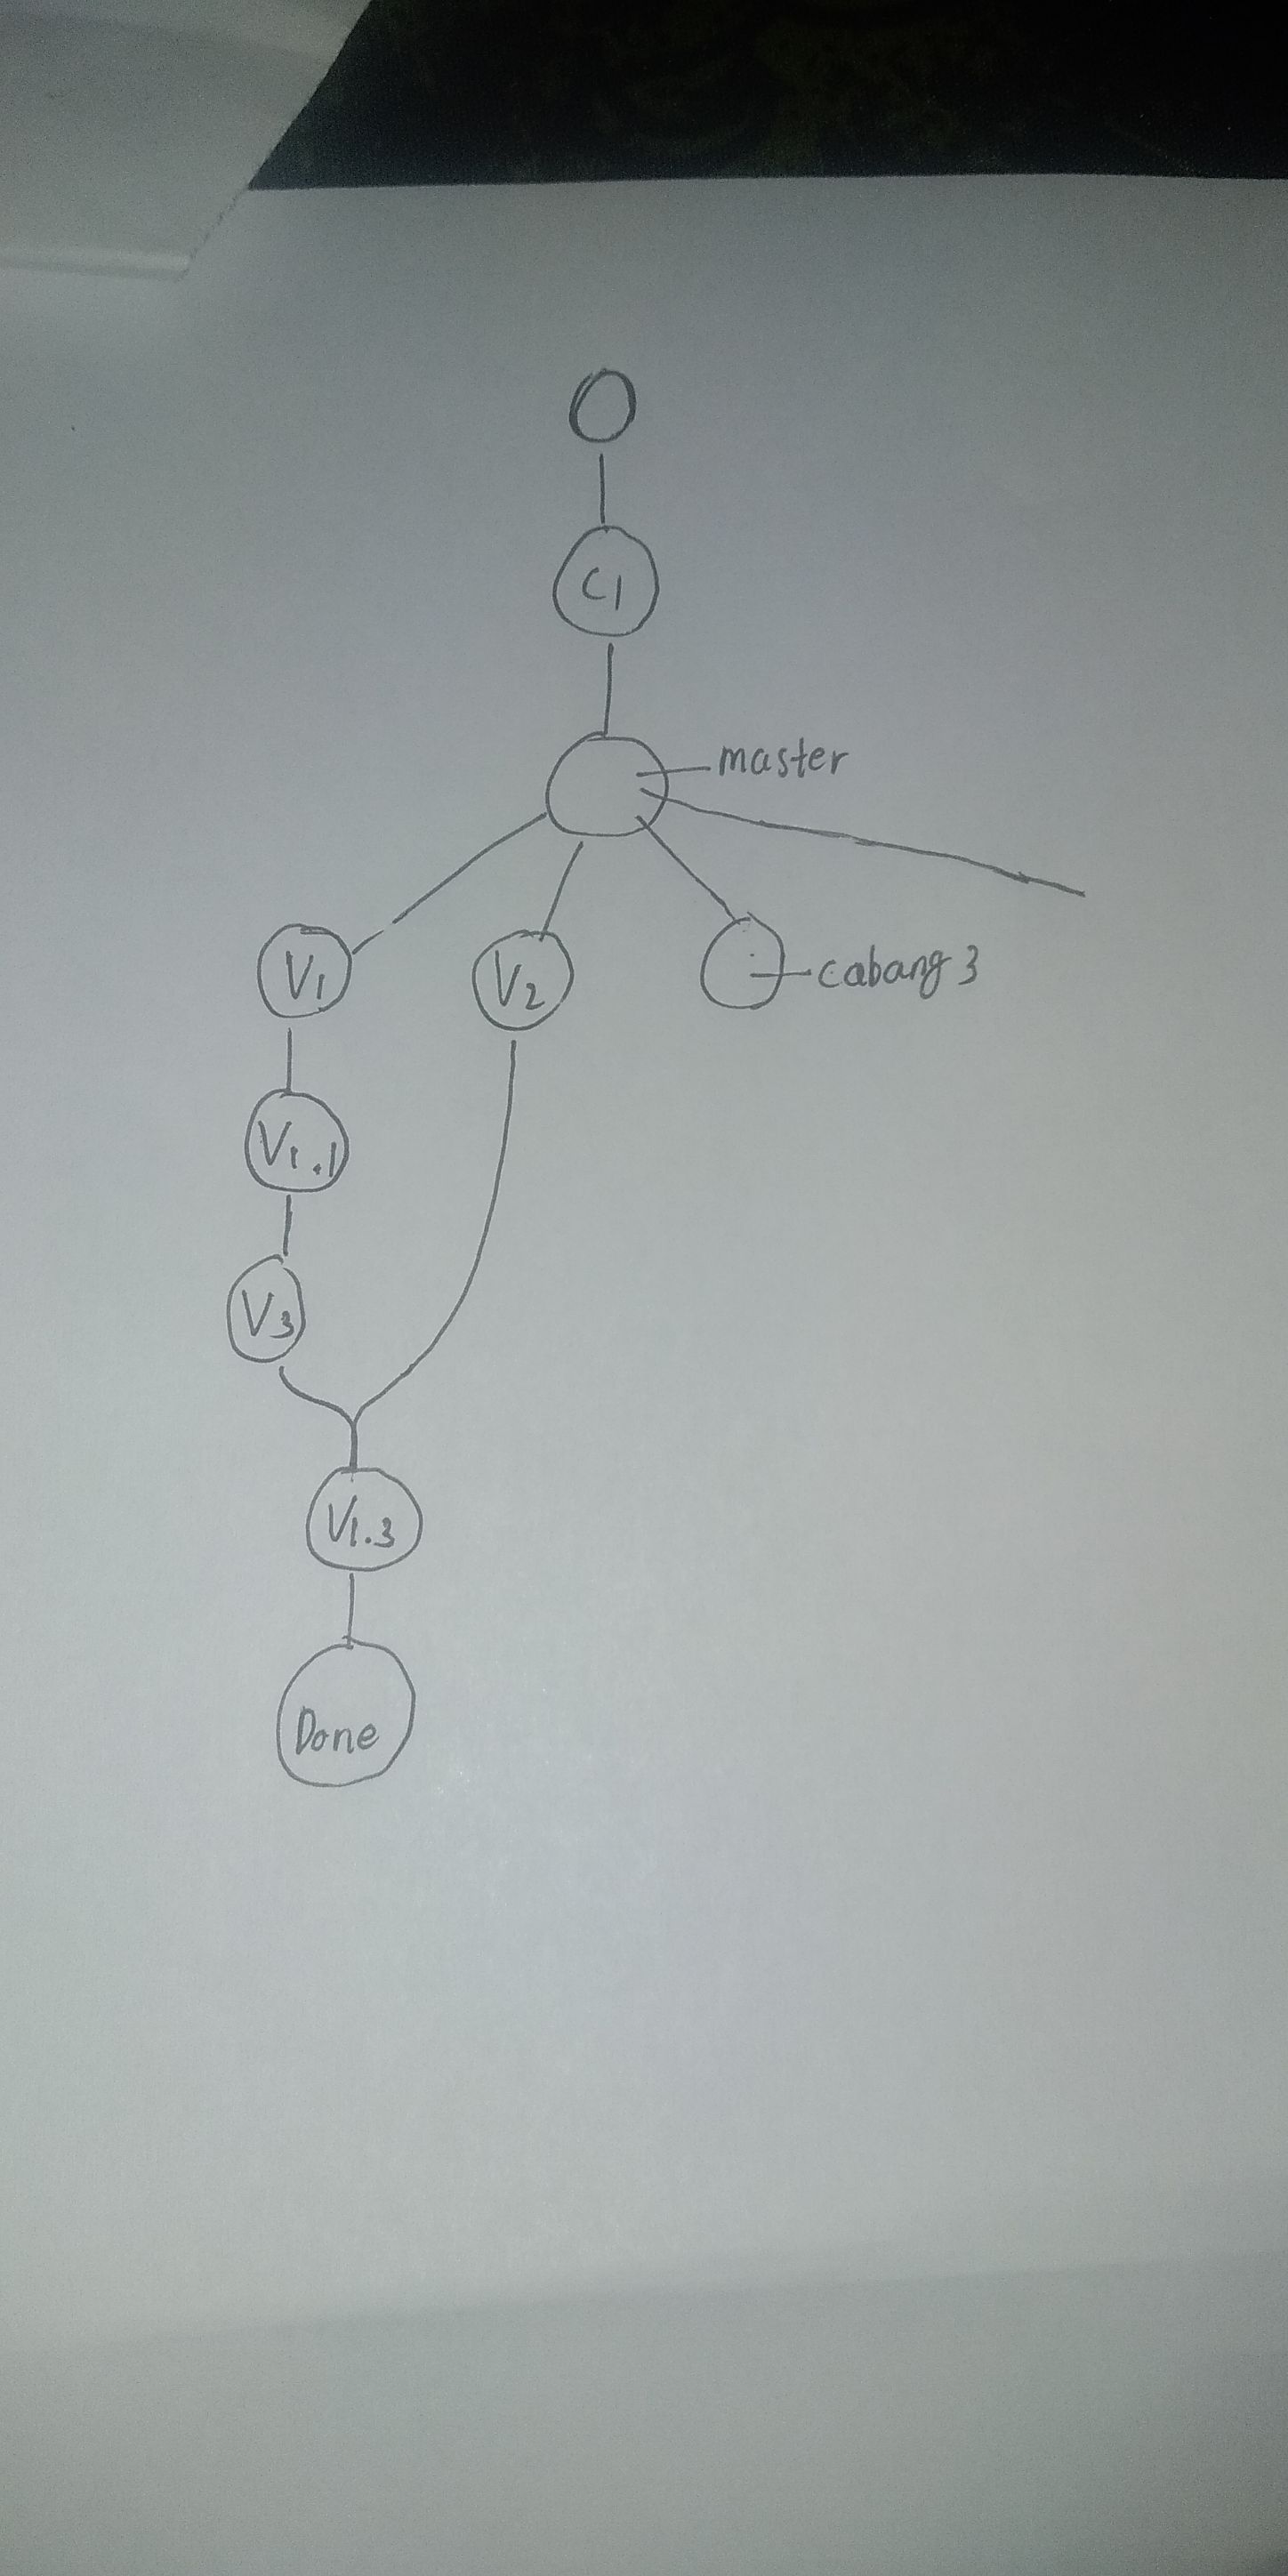 C1
master
V1
V2
cabang 3
V1.1
V3
V1.3
Done